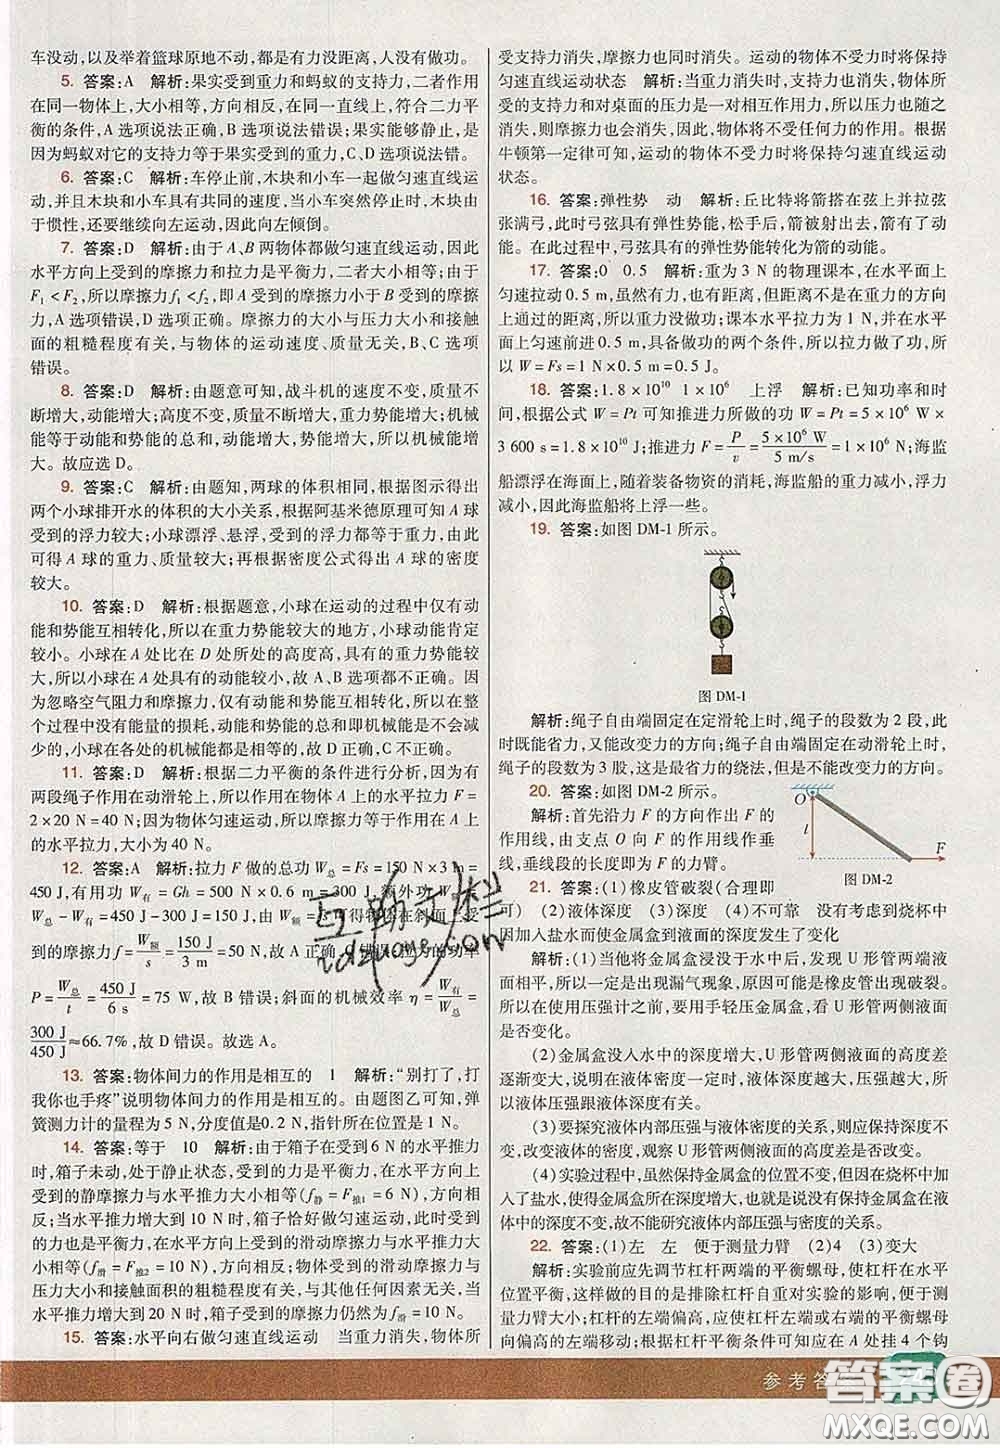 车没动,以及举着篮球原地不动,都是有力没距离,人没有做功。
5. 答案:A 解析:果实受到重力和蚂蚁的支持力,二者作用
在同一物体上,大小相等,方向相反,在同一直线上,符合二力平
衡的条件,A 选项说法正确,B 选项说法错误;果实能够静止,是
因为蚂蚁对它的支持力等于果实受到的重力,C、D 选项说法错。
6. 答案:C 解析:车停止前,木块和小车一起做匀速直线运
动,并且木块和小车具有共同的速度,当小车突然停止时,木块由
于惯性,还要继续向左运动,因此向左倾倒。
7. 答案:D 解析:由于 A、B 两物体都做匀速直线运动,因此
水平方向上受到的摩擦力和拉力是平衡力,二者大小相等;由于
F₁<F₂,所以摩擦力 f₁<f₂,即 A 受到的摩擦力小于 B 受到的摩擦
力,A 选项错误,D 选项正确。摩擦力的大小与压力大小和接触
面的粗糙程度有关,与物体的运动速度、质量无关,B、C 选项
错误。
8. 答案:D 解析:由题意可知,战斗机的速度不变,质量不
断增大,动能增大;高度不变,质量不断增大,重力势能增大;机械
能等于动能和势能的总和,动能增大,势能增大,所以机械能增
大。故应选 D。
9. 答案:C 解析:由题知,两球的体积相同,根据图示得出
两个小球排开水的体积的大小关系,根据阿基米德原理可知 A 球
受到的浮力较大;小球漂浮、悬浮,受到的浮力都等于重力,由此
可得 A 球的重力较大;再根据密度公式得出 A 球的密度
较大。
10. 答案:D 解析:根据题意,小球在运动的过程中仅有动
能和势能互相转化,所以在重力势能较大的地方,小球动能肯定
较小。小球在 A 处比在 D 处所处的高度高,具有的重力势能较大,
所以小球在 A 处具有的动能较小,故 A、B 选项不正确。
因为忽略空气阻力和摩擦力,仅有动能和势能互相转化,所以在
整个过程中没有能量的损耗,动能和势能的总和即机械能是不会减
少的,小球在各处的机械能都是相等的,故 D 正确,C 不正确。
11. 答案:D 解析:根据二力平衡的条件进行分析,因为有
两段绳子作用在动滑轮上,所以作用在物体 A 上的水平拉力 F=
2×20 N=40 N;因为物体匀速运动,所以作用在物体 A 上
的水平拉力,大小为 40 N。
12. 答案:A 解析:拉力 F 做的总功 W总=Fs=150 N×3 m=
450 J,有用功 W有=Gh=500 N×0.6 m=300 J,额外功 W额=
W总-W有=450 J-300 J=150 J,由 W额=fs 可得物体在斜面上受
到的摩擦力 f=W额/s=150 J/3 m=50 N,故 A 正确,C 错误;拉力的功率
P=W总/t=450 J/6 s=75 W,故 B 错误;斜面的机械效率 η=W有/W总=
300 J/450 J≈66.7%,故 D 错误。故选 A。
13. 答案:物体间力的作用是相互的 1 解析:“别打了,打
我你也手疼”说明物体间力的作用是相互的。由题图乙可知,弹
簧测力计的量程为 5 N,分度值是0.2 N,指针所在的位置是 1 N。
14. 答案:等于 10 解析:由于箱子在受到 6 N 的水平推力
时,箱子未动,处于静止状态,受到的力是平衡力,在水平方向上
受到的静摩擦力与水平推力大小相等(f静=F推1=6 N),方向相
反;当水平推力增大到 10 N 时,箱子恰好做匀速运动,此时受到的
也是平衡力,在水平方向上受到的滑动摩擦力与水平推力大小相
等(f滑=F推2=10 N),方向相反。因为物体受到的滑动摩擦力与
压力大小和接触面积的粗糙程度有关,与其他因素无关,故当水
平推力增大到 20 N 时,箱子受到的摩擦力仍然为 f滑=10 N。
15. 答案:水平向右做匀速直线运动 当重力消失,物体所
受支持力消失,摩擦力也同时消失。运动的物体不受力时将保持
匀速直线运动状态 解析:当重力消失时,支持力也消失,物体
所受的支持力和对桌面的压力是一对相互作用力,所以压力也随之
消失,则摩擦力也会消失,因此,物体将不受任何力的作用。根据
牛顿第一定律可知,运动的物体不受力时将保持匀速直线运动
状态。
16. 答案:弹性势 动 解析:丘比特将箭搭在弦上并拉弦
张满弓,此时弓弦具有弹性势能,松手后,箭被射出去,箭有了动
能。在此过程中,弓弦具有的弹性势能转化为箭的动能。
17. 答案:0 0.5 解析:重为 3 N 的物理课本,在水平面上
匀速拉动 0.5 m,虽然有力,也有距离,但距离不是在重力的方向
上通过的距离,所以重力没做功;课本水平拉力为 1 N,并在水平
面上匀速前进 0.5 m,具备做功的两个条件,所以拉力做了功,所
以 W=Fs=1 N×0.5 m=0.5 J。
18. 答案:1.8×10¹⁰ 1×10⁶ 上浮 解析:已知功率和时
间,根据公式 W=Pt 可知推进力所做的功 W=Pt=5×10⁶ W×
3 600 s=1.8×10¹⁰ J;推进力 F=P/v=5×10⁶ W/5 m/s=1×10⁶ N;海监
船漂浮在海面上,随着装备物资的消耗,海监船的重力减小,浮力
减小,因此海监船将上浮一些。
19. 答案:如图 DM-1 所示。
图 DM-1
解析:绳子自由端固定在定滑轮上时,绳子的段数为 2 段,此
时既能省力,又能改变力的方向;绳子自由端固定在动滑轮上时,
绳子的段数为 3 股,这是最省力的绕法,但是不能改变力的方向。
20. 答案:如图 DM-2 所示。
解析:首先沿力 F 的方向作出 F
的作用线,由支点 O 向 F 的作用线作垂
线,垂线段的长度即为 F 的力臂。
O
l
F
图 DM-2
21. 答案:(1)橡皮管破裂(合理即
可) (2)液体深度 (3)深度 (4)不可靠 没有考虑到烧杯中
因加入盐水而使金属盒到液面的深度发生了变化
解析:(1)当他将金属盒浸没于水中后,发现 U 形管两端液
面相平,所以一定是出现漏气现象,原因可能是橡皮管出现破裂。
所以在使用压强计之前,要用手轻压金属盒,看 U 形管两侧液面
是否变化。
(2)金属盒没入水中的深度增大,U 形管两侧液面的高度差
逐渐变大,说明在液体密度一定时,液体深度越大,压强越大,所以
液体压强跟液体深度有关。
(3)要探究液体内部压强与液体密度的关系,则应保持深度不
变,改变液体的密度,观察 U 形管两侧液面的高度是否改变。
(4)实验过程中,虽然保持金属盒的位置不变,但因在烧杯中加入
了盐水,使得金属盒所在的深度增大,也就是说没有保持金属盒在液
体中的深度不变,故不能研究液体内部压强与密度的关系。
22. 答案:(1)左 左 便于测量力臂 (2)4 (3)变大
解析:实验前应先调节杠杆两端的平衡螺母,使杠杆在水平
位置平衡,这样做的目的是排除杠杆自重对实验的影响,便于测
量力臂大小;杠杆的左端偏高,应使杠杆左端或右端的平衡螺母
向偏高的左端移动;根据杠杆平衡条件可知应在 A 处挂 4 个钩
参考答
答案圈
MXQE.COM